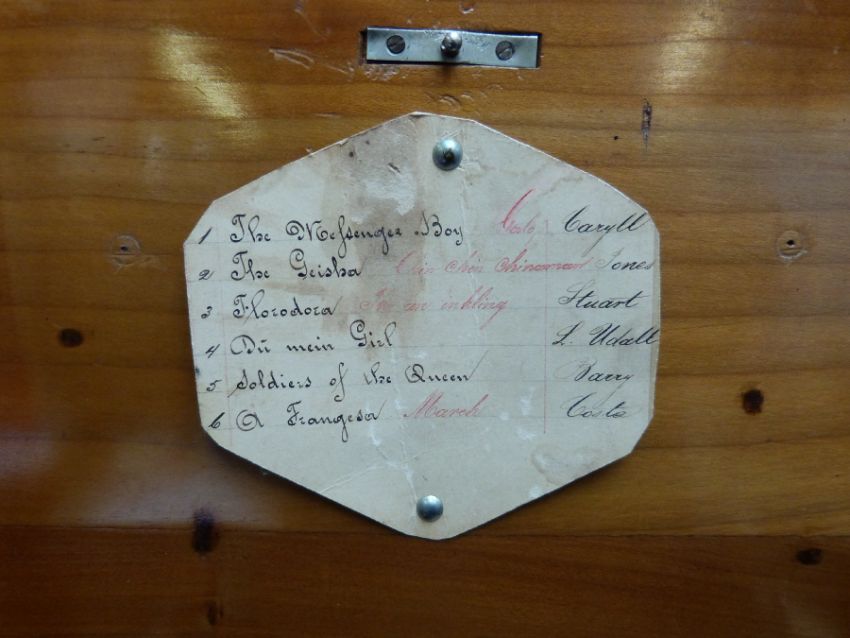 1 The Messenger Boy Caryll
2 The Geisha Chin chin chinaman Jones
3 Florodora I've an inkling Stuart
4 Dū mein Girl L. Udall
5 Soldiers of the Queen Barry
6 A Frangesa March Costa